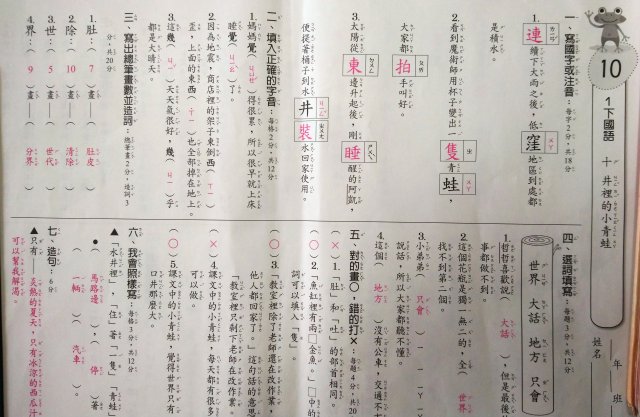 10
1下國語
十 井裡的小青蛙
年 班
姓名
一、寫國字或注音：每字2分，共18分
1. 連續下大雨之後，低窪地區到處都
是積水。
2. 看到魔術師用杯子變出一隻青蛙，
大家都拍手叫好。
3. 太陽從東邊升起後，剛睡醒的阿凱，
便提著桶子到水井裝水回家使用。
二、填入正確的字音：每格2分，共12分
1. 媽媽覺（ㄐㄩㄝˊ）得很累，所以很早就上床
睡覺（ㄐㄧㄠˋ）了。
2. 因為地震，商店裡的架子東倒西（ㄒㄧ）
歪，上面的東西（ㄒㄧ）也全部掉在地上。
3. 這幾（ㄐㄧˇ）天天氣很好，幾（ㄐㄧ）乎
都是大晴天。
三、寫出總筆畫數並造詞：總筆畫2分，造詞3
分，共20分
1. 肚：（7）畫——（肚皮）
2. 除：（10）畫——（清除）
3. 世：（5）畫——（世代）
4. 界：（9）畫——（分界）
四、選詞填寫：每題3分，共12分
世界 大話 地方 只會
1. 哲哲喜歡說（大話），但是最後
事都做不到。
2. 這個花瓶是獨一無二的，全（世界
找不到第二個。
3. 小弟弟（只會）
說話，所以大家都聽不懂。
4. 這個（地方）沒有公車，交通不
五、對的畫○，錯的打×：每題4分，共20分
（×）1.「肚」和「吐」的部首相同。
（○）2.「魚缸裡有兩□金魚。」□中的
詞可以填入「隻」。
（○）3.「教室裡除了老師還在改作業，
他人都回家了。」這句話的意思
「教室裡只剩下老師在改作業。
（×）4. 課文中的小青蛙，每天都有很多
可以做。
（○）5. 課文中的小青蛙，覺得世界只有
口井那麼大。
六、我會照樣寫：每格3分，共12分
▲「水井裡」，「住」著「一隻」「青蛙
●（馬路邊），（停）著
（一輛）（汽車）。
七、造句：6分
▲只有——炎熱的夏天，只有冰涼的西瓜汁
可以幫我解渴。